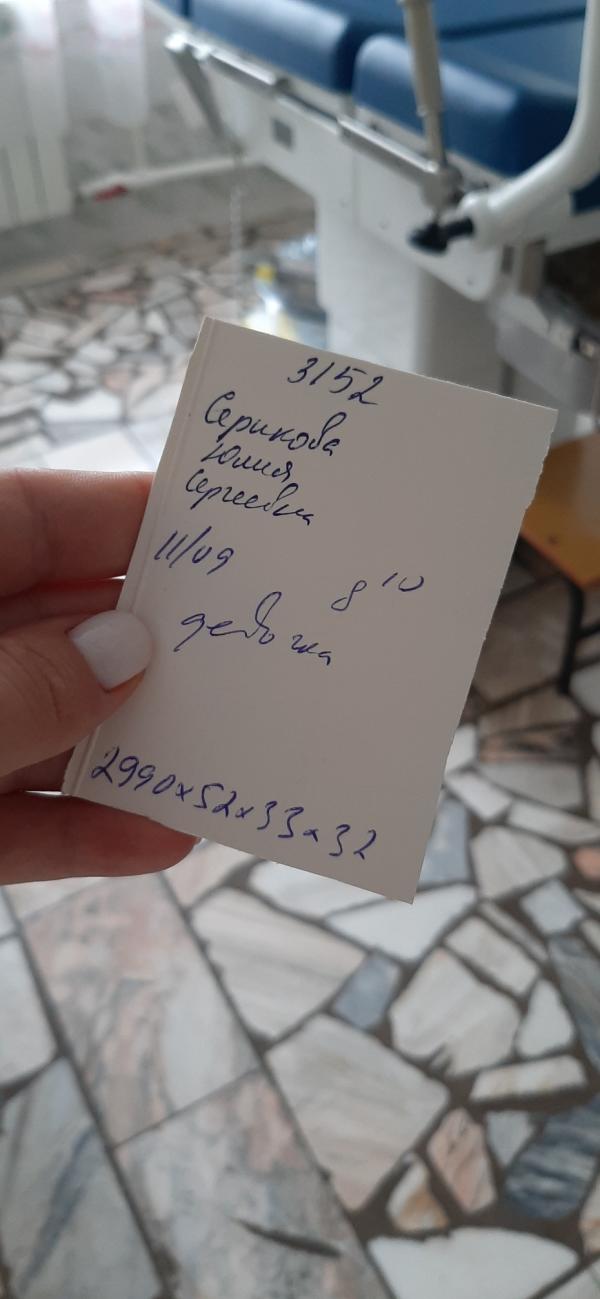 3152
Серикова
Юлия
Сергеевна
11/09 8 10
девочка
2990x52x33x32